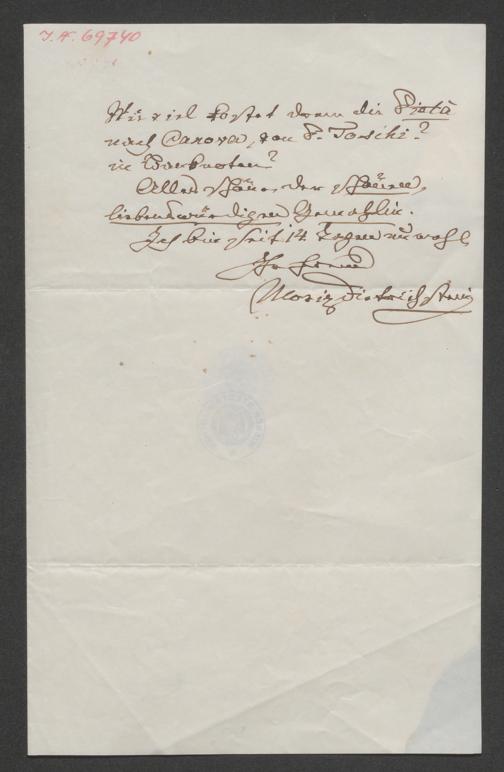 I.N. 69740
Wie viel kostet denn die Pietà
nach Canova, von P. Toschi?
in Banknoten?
Alles schöne der schönen,
liebenswürdigen Gemahlin.
Ich bin seit 14 Tagen unwohl
Ihr Freund
Moriz Dietrichstein